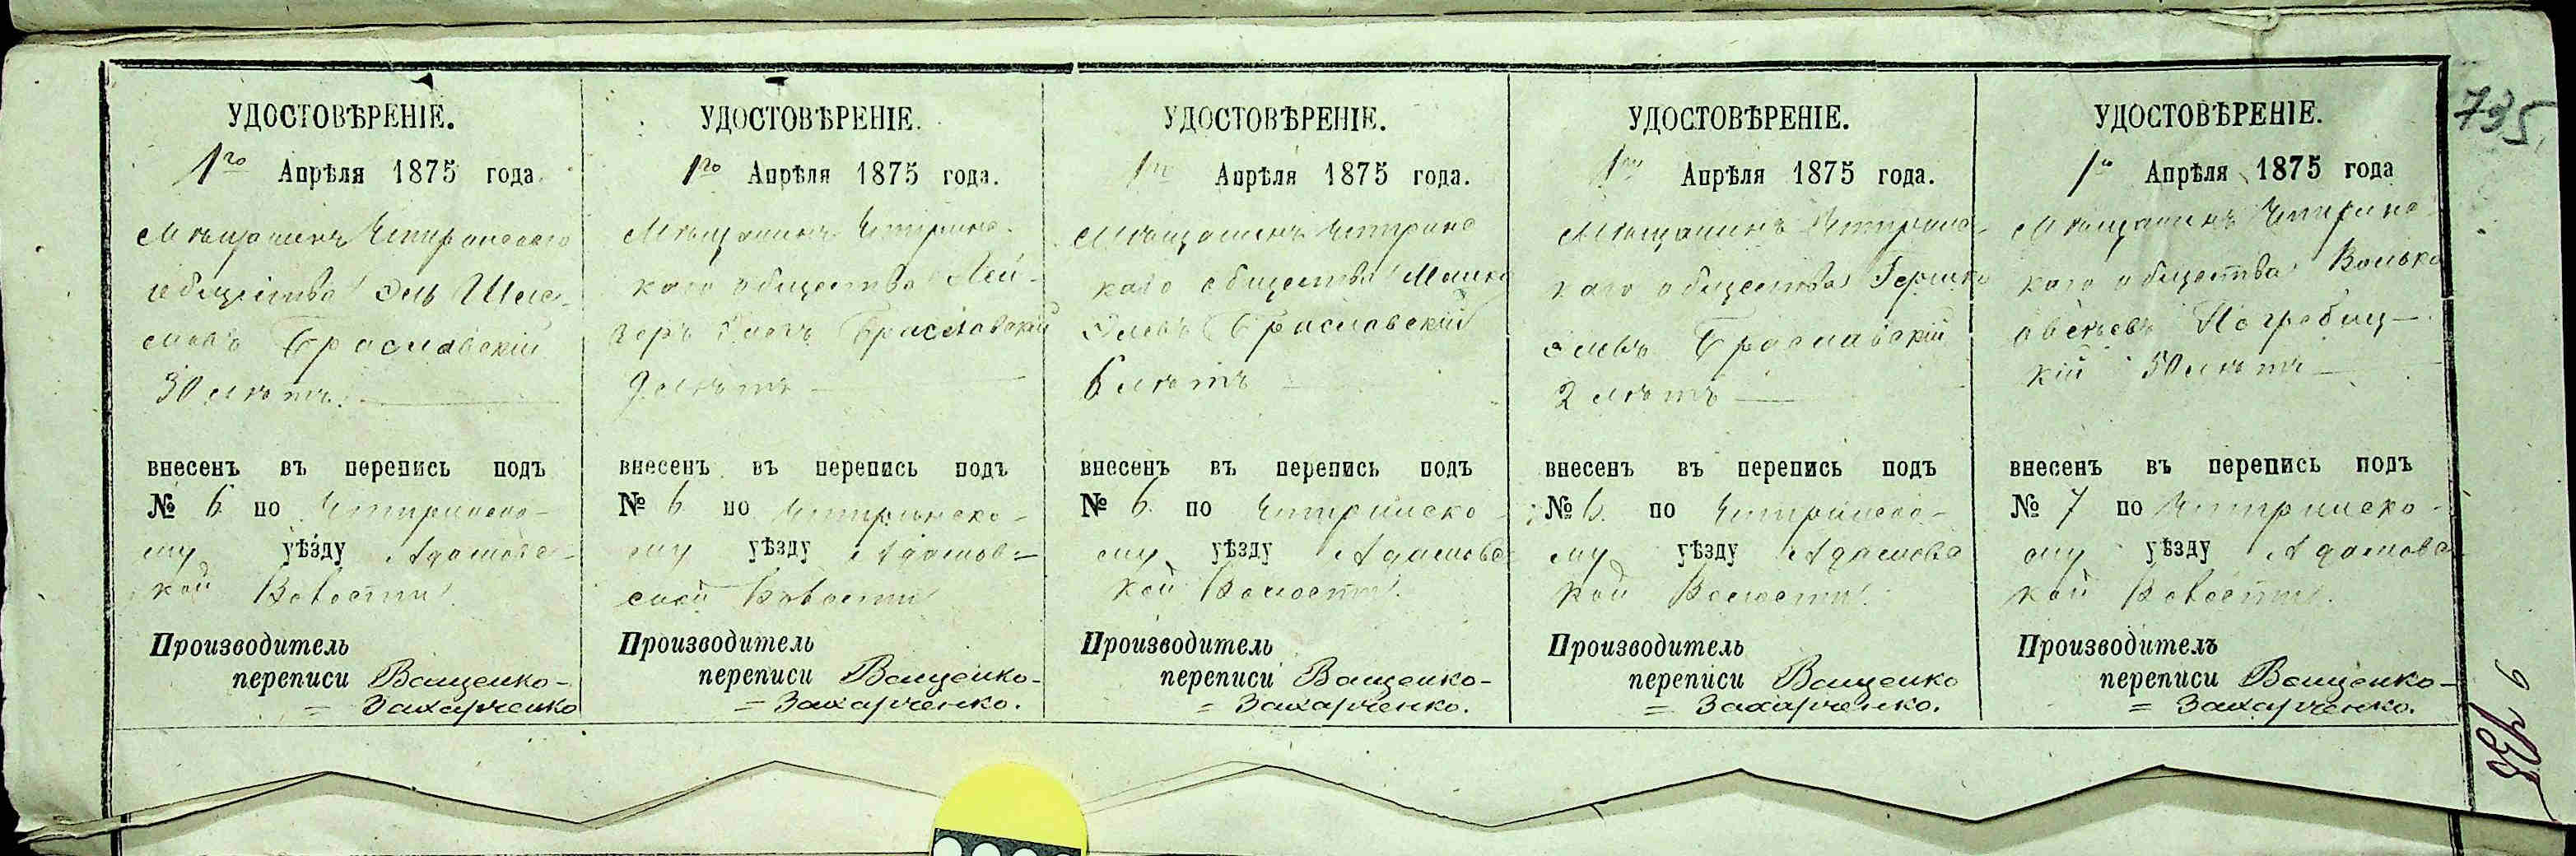 УДОСТОВѢРЕНІЕ.
1го Апрѣля 1875 года.
Мѣщанинъ Чигиринскаго
общества Эль Шле-
мовъ Браславскій
30 лѣтъ.
внесенъ въ перепись подъ
№ 6 по Чигиринско-
му уѣзду Адамовс-
кой Волости
Производитель
переписи Ващенко-
= Захарченко
УДОСТОВѢРЕНІЕ.
1го Апрѣля 1875 года.
Мѣщанинъ Чигиринс-
каго общества Лей-
зеръ Элевъ Браславскій
9 лѣтъ
внесенъ въ перепись подъ
№ 6 по Чигиринско-
му уѣзду Адамов=
ской Волости
Производитель
переписи Ващенко-
= Захарченко.
УДОСТОВѢРЕНІЕ.
1го Апрѣля 1875 года.
Мѣщанинъ Чигиринс
каго общества Мошко
Элевъ Браславскій
6 лѣтъ
внесенъ въ перепись подъ
№ 6. по Чигиринско-
му уѣзду Адамовс
кой Волости.
Производитель
переписи Ващенко-
= Захарченко.
УДОСТОВѢРЕНІЕ.
1го Апрѣля 1875 года.
Мѣщанинъ Чигиринс-
каго общества Гершко
Элевъ Браславскій
2 лѣтъ
внесенъ въ перепись подъ
№ 6. по Чигиринско-
му уѣзду Адамовс
кой Волости.
Производитель
переписи Ващенко
= Захарченко.
УДОСТОВѢРЕНІЕ.
1го Апрѣля 1875 года
Мѣщанинъ Чигиринс
каго общества Волько
Погребищ-
кій 50 лѣтъ
внесенъ въ перепись подъ
№ 7 по Чигиринско-
му уѣзду Адамовс
кой Волости.
Производитель
переписи Ващенко-
= Захарченко.
735